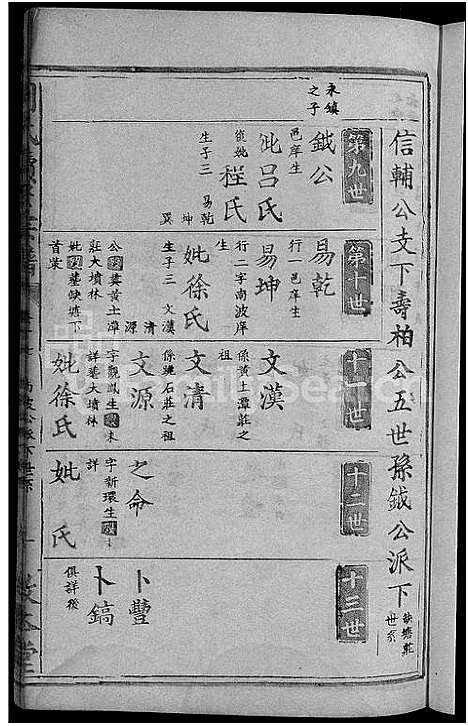 信輔公支下壽柏公五世孫鉞公派下
缺塘莊
世系
第九世
永鎮
之子
鉞公
邑庠生
妣呂氏
後妣程氏
生子三
易乾
坤
巽
第十世
易乾
行一邑庠生
易坤
行二字南波庠
生
妣徐氏
生子三
文漢
清
源
公葬黄土潭
莊大墳林
妣墓缺塘下
首塋
十一世
文漢
係黄土潭莊之
祖
文清
係璉石莊之祖
文源
字觀鳳生未
詳葬大墳林
妣徐氏
十二世
之命
字新環生
詳
妣 氏
十三世
卜豐
卜鎬
俱詳後